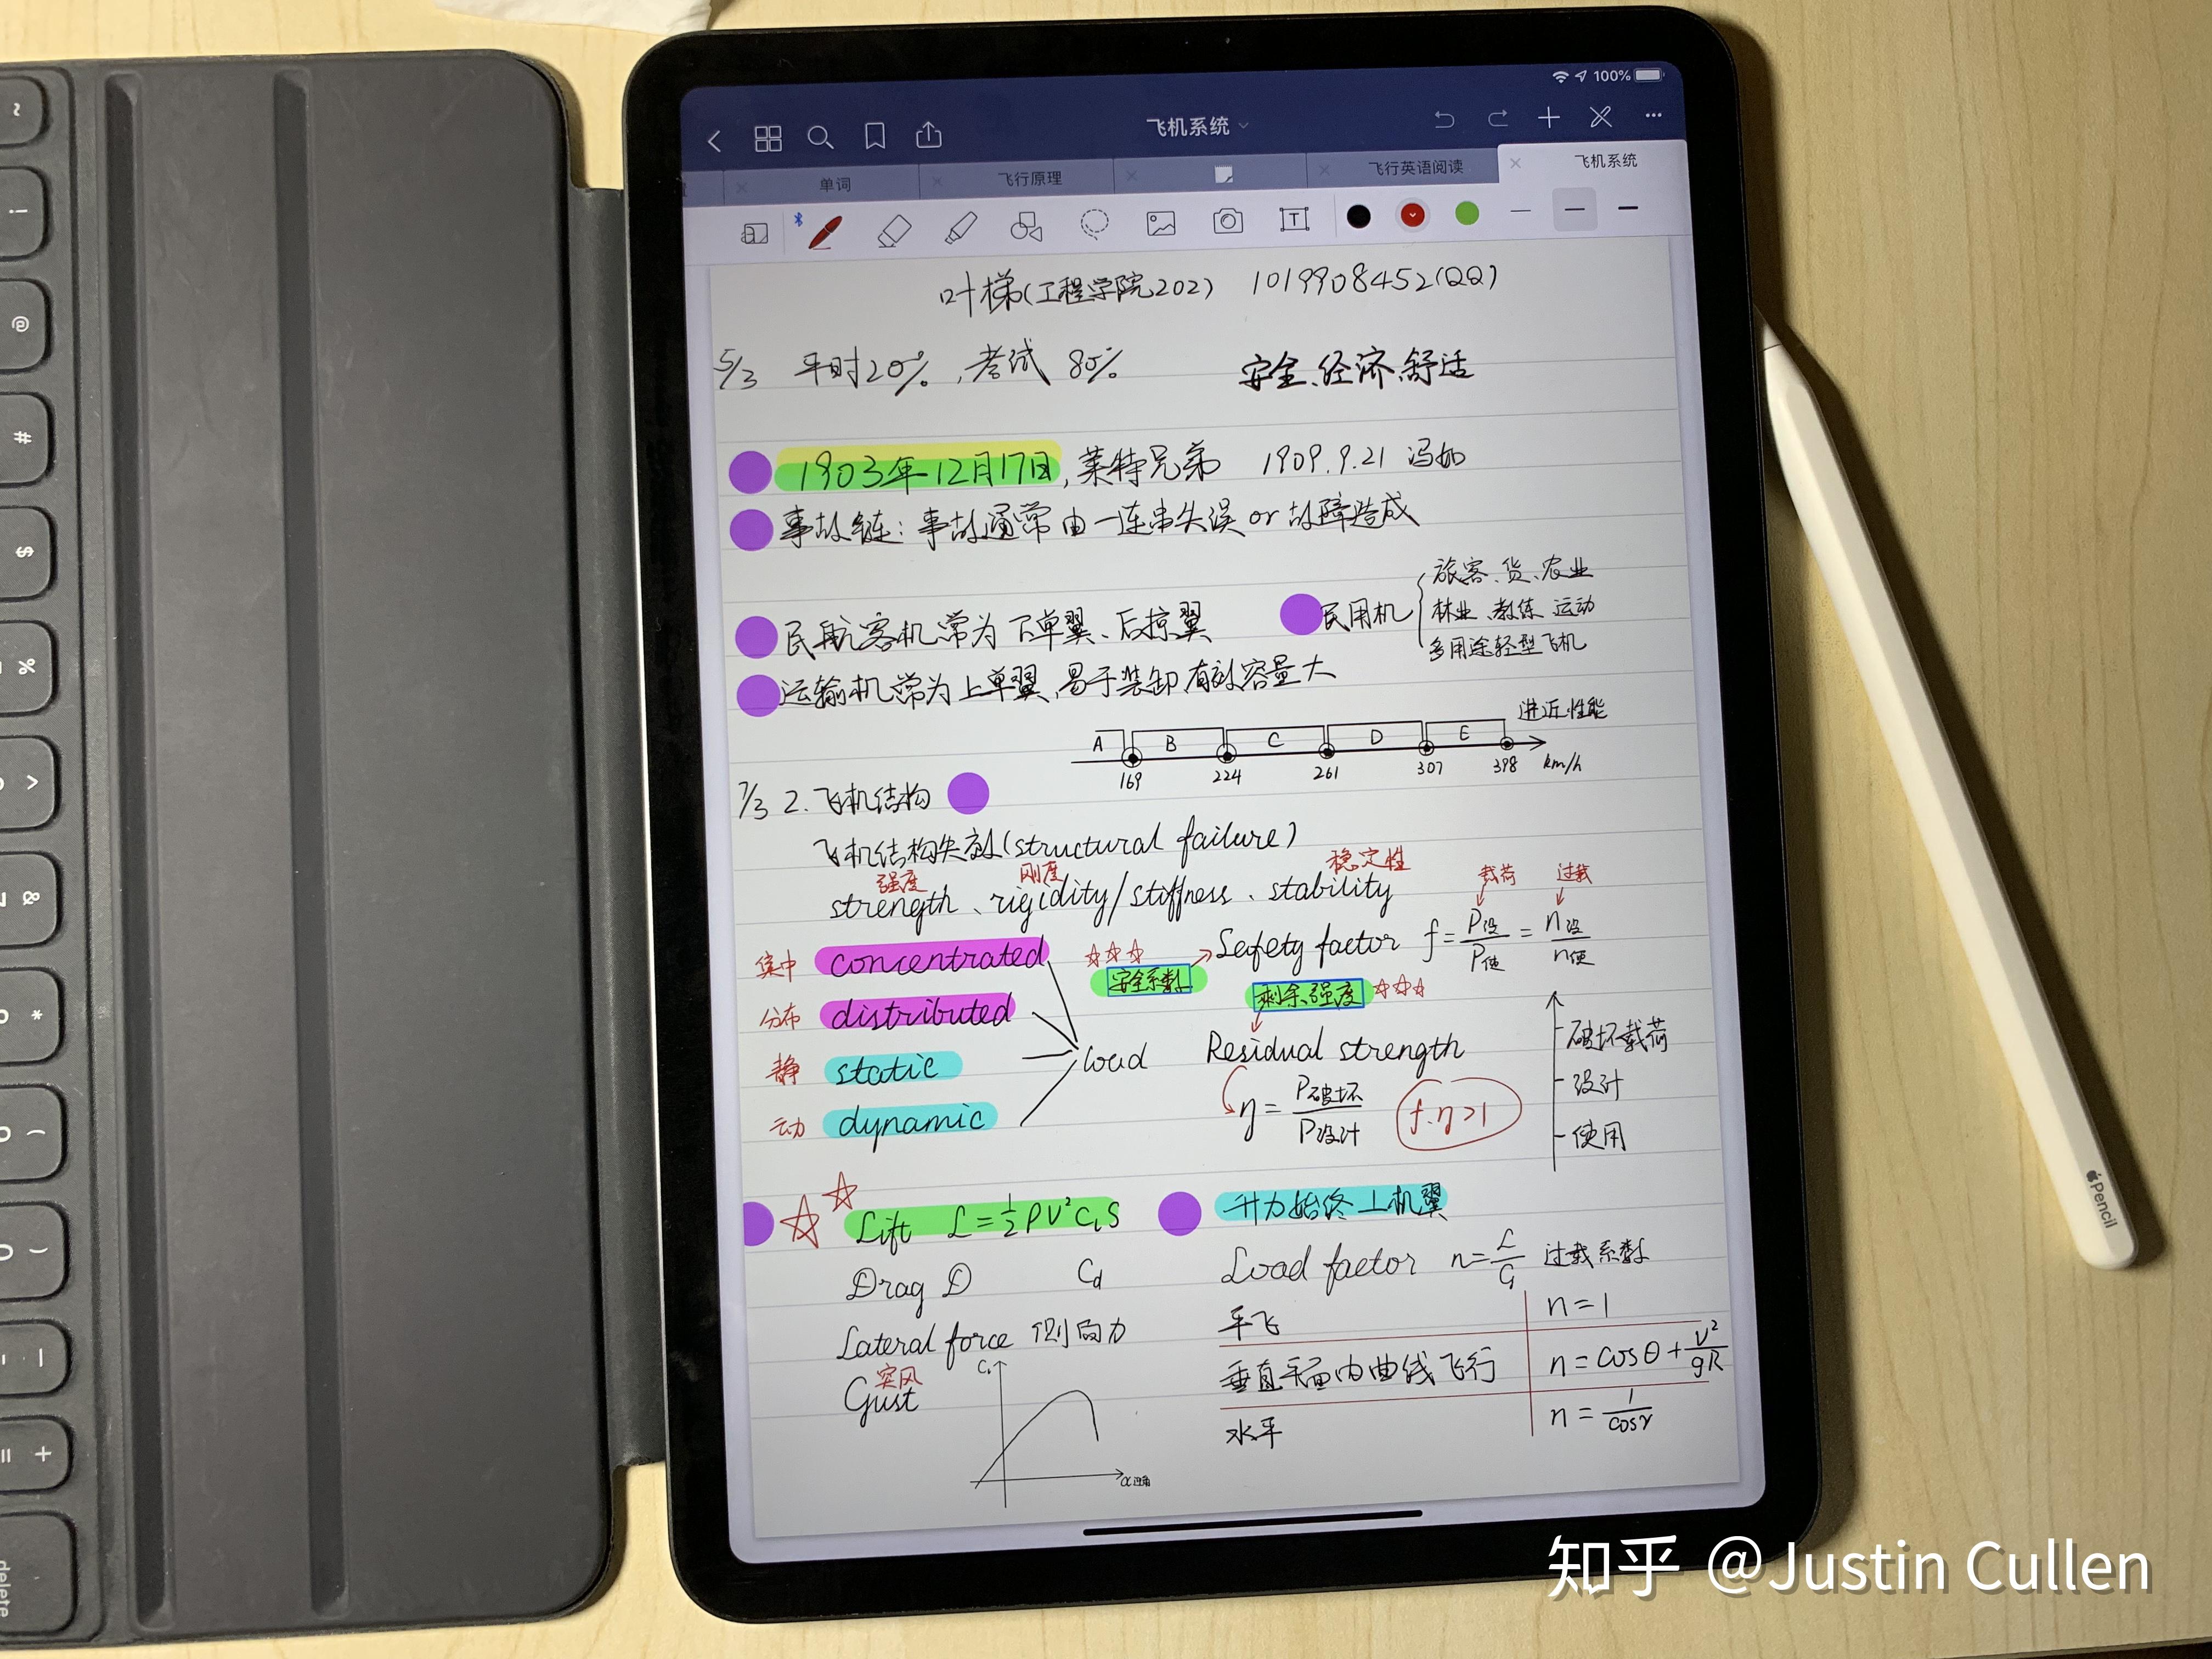 100%
飞机系统
单词
飞行原理
飞行英语阅读
飞机系统
T
叶梯(工程学院202) 1019908452(QQ)
5/3 平时20%,考试 80% 安全、经济、舒适
1903年12月17日,莱特兄弟 1909.9.21 冯如
事故链:事故通常由一连串失误 or 故障造成
民航客机常为下单翼、后掠翼
民用机
旅客、货、农业
林业、教练、运动
多用途轻型飞机
运输机常为上单翼,易于装卸 有效容量大
进近性能
A B C D E
169 224 261 307 398 km/h
7/3 2.飞机结构
飞机结构失效(structural failure)
强度 刚度 稳定性
strength、rigidity/stiffness、stability
载荷 过载
集中 concentrated
☆☆☆ Safety factor f=P设/P使=n设/n使
安全系数
剩余强度 ☆☆☆
分布 distributed
静 static
load
动 dynamic
Residual strength
η=P破坏/P设计 f.η>1
破坏载荷
设计
使用
☆☆ Lift L=½ρV²CLS
升力始终⊥机翼
Drag D Cd
Load factor n=L/G 过载系数
Lateral force 侧向力
平飞 n=1
突风
Gust
垂直平面内曲线飞行 n=cosθ+V²/gR
水平 n=1/cosγ
CL
~
!
@
#
$
%
^
&
*
(
)
—
+
=
delete
Pencil
知乎 @Justin Cullen